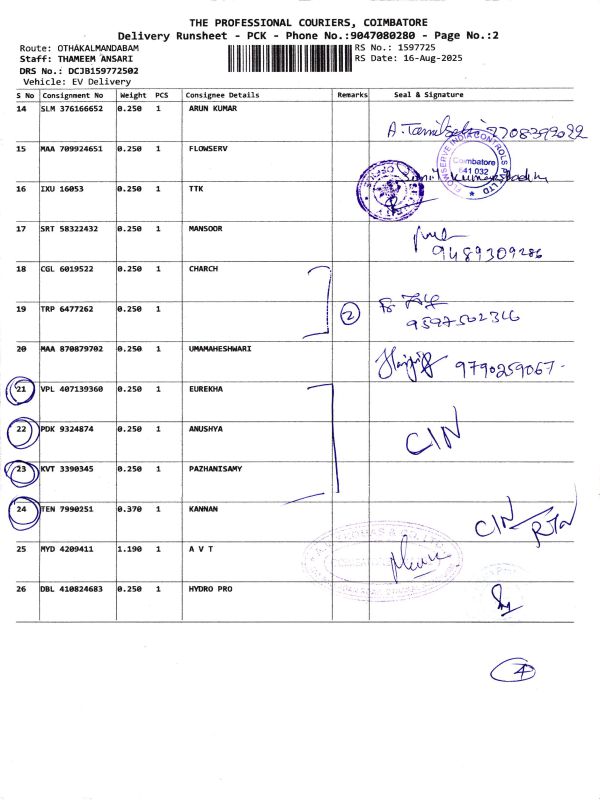 THE PROFESSIONAL COURIERS, COIMBATORE
Delivery Runsheet - PCK - Phone No.:9047080280 - Page No.:2
Route: OTHAKALMANDABAM
RS No.: 1597725
Staff: THAMEEM ANSARI
RS Date: 16-Aug-2025
DRS No.: DCJB159772502
Vehicle: EV Delivery
S No Consignment No Weight PCS Consignee Details Remarks Seal & Signature
14 SLM 376166652 0.250 1 ARUN KUMAR
15 MAA 709924651 0.250 1 FLOWSERV
FLOWSERVE INDIA CONTROLS PVT LTD
Coimbatore
641 032
16 IXU 16053 0.250 1 TTK
17 SRT 58322432 0.250 1 MANSOOR
9489309286
18 CGL 6019522 0.250 1 CHARCH
19 TRP 6477262 0.250 1 2
9597502346
20 MAA 870879702 0.250 1 UMAMAHESHWARI
9790259067
21 VPL 407139360 0.250 1 EUREKHA
22 PDK 9324874 0.250 1 ANUSHYA
C/N
23 KVT 3390345 0.250 1 PAZHANISAMY
24 TEN 7990251 0.370 1 KANNAN
C/N
25 MYD 4209411 1.190 1 A V T
26 DBL 410824683 0.250 1 HYDRO PRO
4